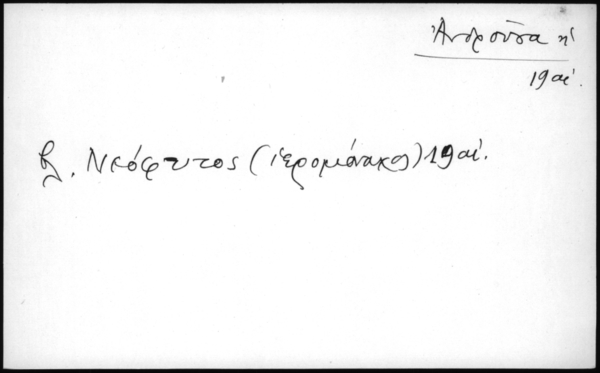 Ἀνδροῦσα ἡ
19 αἰ.
βλ. Νεόφυτος (ἱερομόναχος) 19 αἰ.